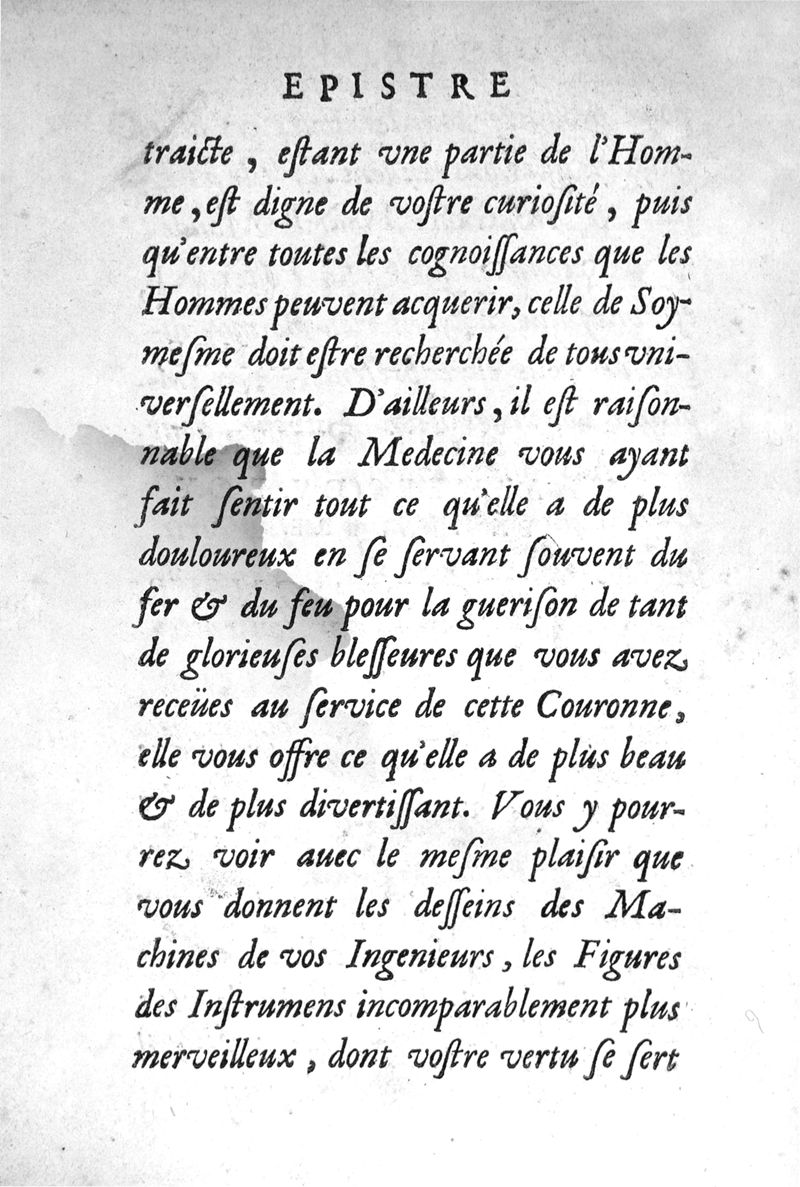 EPISTRE
traicte , eſtant vne partie de l'Hom-
me , eſt digne de voſtre curioſité , puis
qu'entre toutes les cognoiſſances que les
Hommes peuvent acquerir, celle de Soy-
meſme doit eſtre recherchée de tous vni-
verſellement. D'ailleurs , il eſt raiſon-
nable que la Medecine vous ayant
fait ſentir tout ce qu'elle a de plus
douloureux en ſe ſervant ſouvent du
fer & du feu pour la gueriſon de tant
de glorieuſes bleſſeures que vous avez
receües au ſervice de cette Couronne,
elle vous offre ce qu'elle a de plus beau
& de plus divertiſſant. Vous y pour-
rez voir auec le meſme plaiſir que
vous donnent les deſſeins des Ma-
chines de vos Ingenieurs , les Figures
des Inſtrumens incomparablement plus
merveilleux , dont voſtre vertu ſe ſert